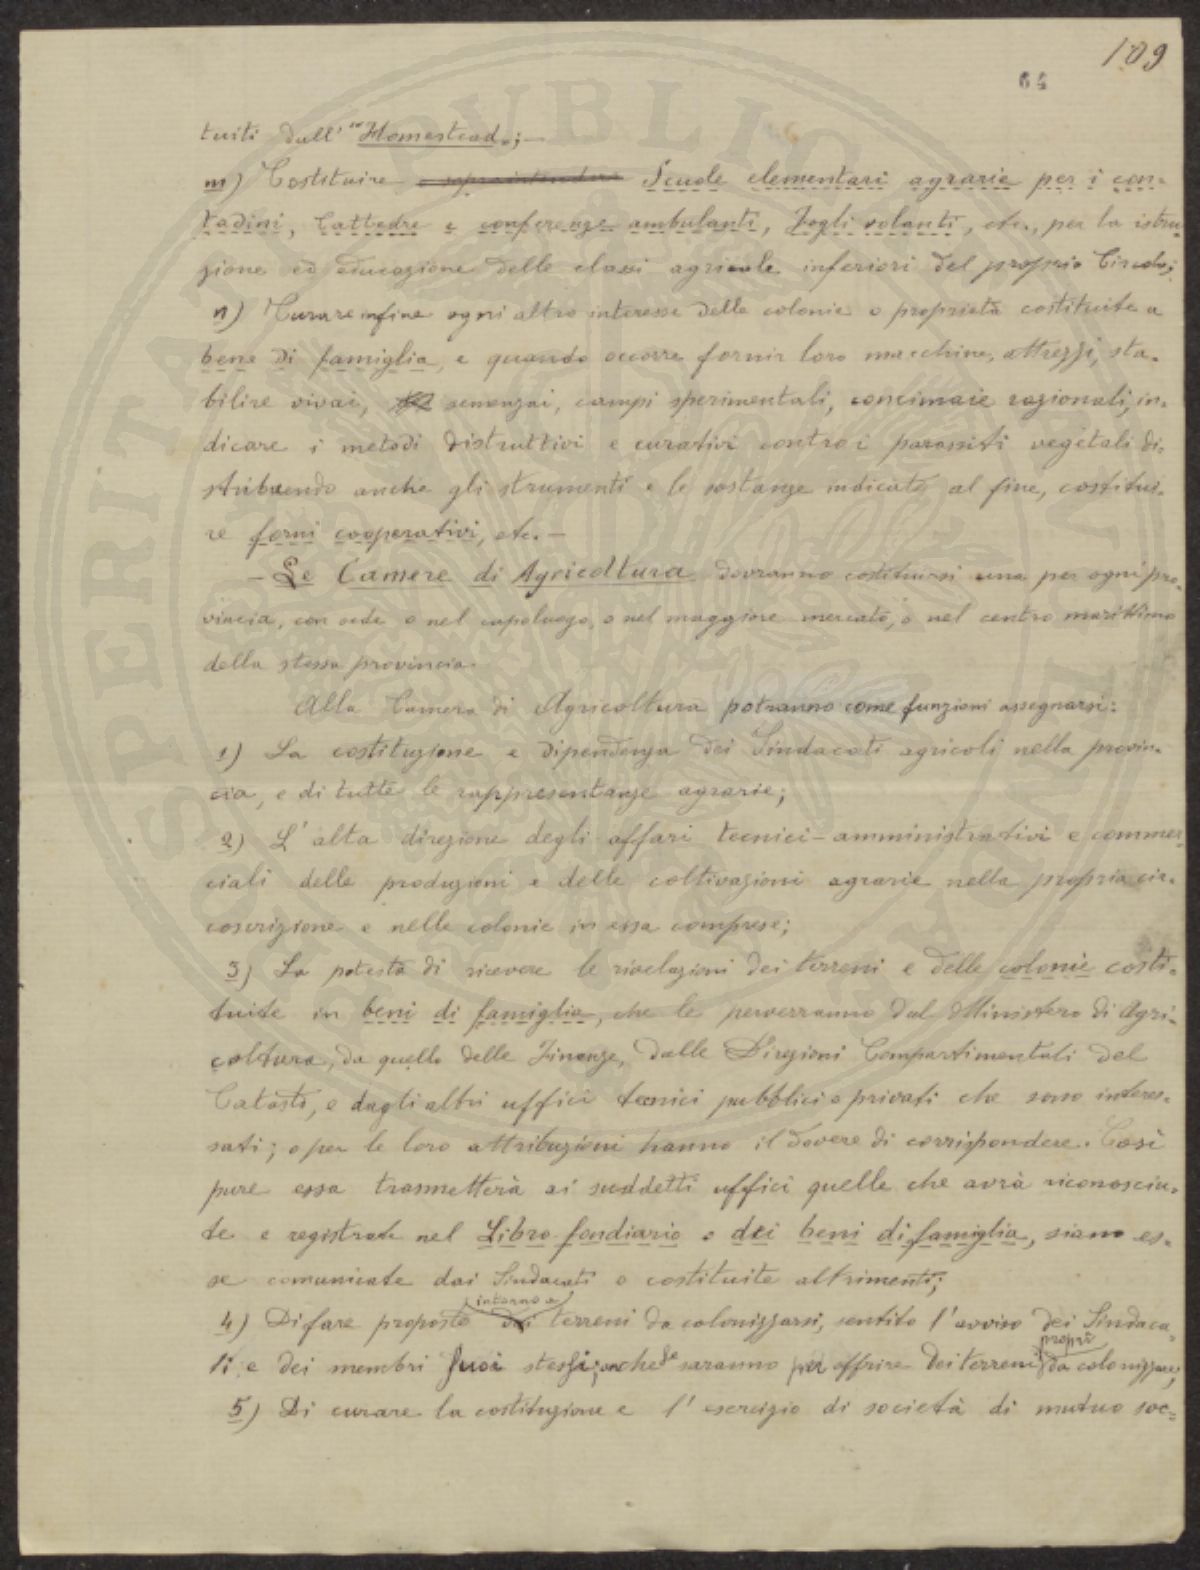 109
64
tuiti dall' "Homestead„;—
m) Costituire sopraintendere Scuole elementari agrarie per i con-
tadini, Cattedre e conferenze ambulanti, Fogli volanti, etc., per la istru
zione ed educazione delle classi agricole inferiori del proprio Circolo;
n) Curare infine ogni altro interesse delle colonie o proprietà costituite a
bene di famiglia, e quando occorre fornir loro macchine, attrezzi, sta-
bilire vivai, semenzai, campi sperimentali, concimaie razionali, in-
dicare i metodi distruttivi e curativi contro i parassiti vegetali di-
stribuendo anche gli strumenti e le sostanze indicate al fine, costitui-
re forni cooperativi, etc.—
— Le Camere di Agricoltura dovranno costituirsi una per ogni pro-
vincia, con sede o nel capoluogo, o nel maggiore mercato, o nel centro marittimo
della stessa provincia.
Alla Camera di Agricoltura potranno come funzioni assegnarsi:
1) La costituzione e dipendenza dei Sindacati agricoli nella provin-
cia, e di tutte le rappresentanze agrarie;
2) L'alta direzione degli affari tecnici-amministrativi e commer-
ciali delle produzioni e delle coltivazioni agrarie nella propria cir-
coscrizione e nelle colonie in essa comprese;
3) La potestà di ricevere le rivelazioni dei terreni e delle colonie costi-
tuite in beni di famiglia, che le perverranno dal Ministero di Agri-
coltura, da quello delle Finanze, dalle Direzioni Compartimentali del
Catasto, e dagli altri uffici tecnici pubblici o privati che sono interes-
sati; o per le loro attribuzioni hanno il dovere di corrispondere. Così
pure essa trasmetterà ai suddetti uffici quelle che avrà riconosciu-
te e registrate nel Libro fondiario o dei beni di famiglia, siano es-
se comunicate dai Sindacati o costituite altrimenti;
intorno a
4) Di fare proposte dei terreni da colonizzarsi, sentito l'avviso dei Sindaca-
proprî
ti e dei membri suoi stessi; anche se saranno per offrire dei terreni da colonizzare;
5) Di curare la costituzione e l'esercizio di società di mutuo soc-
SPERITATI PUBLICAE